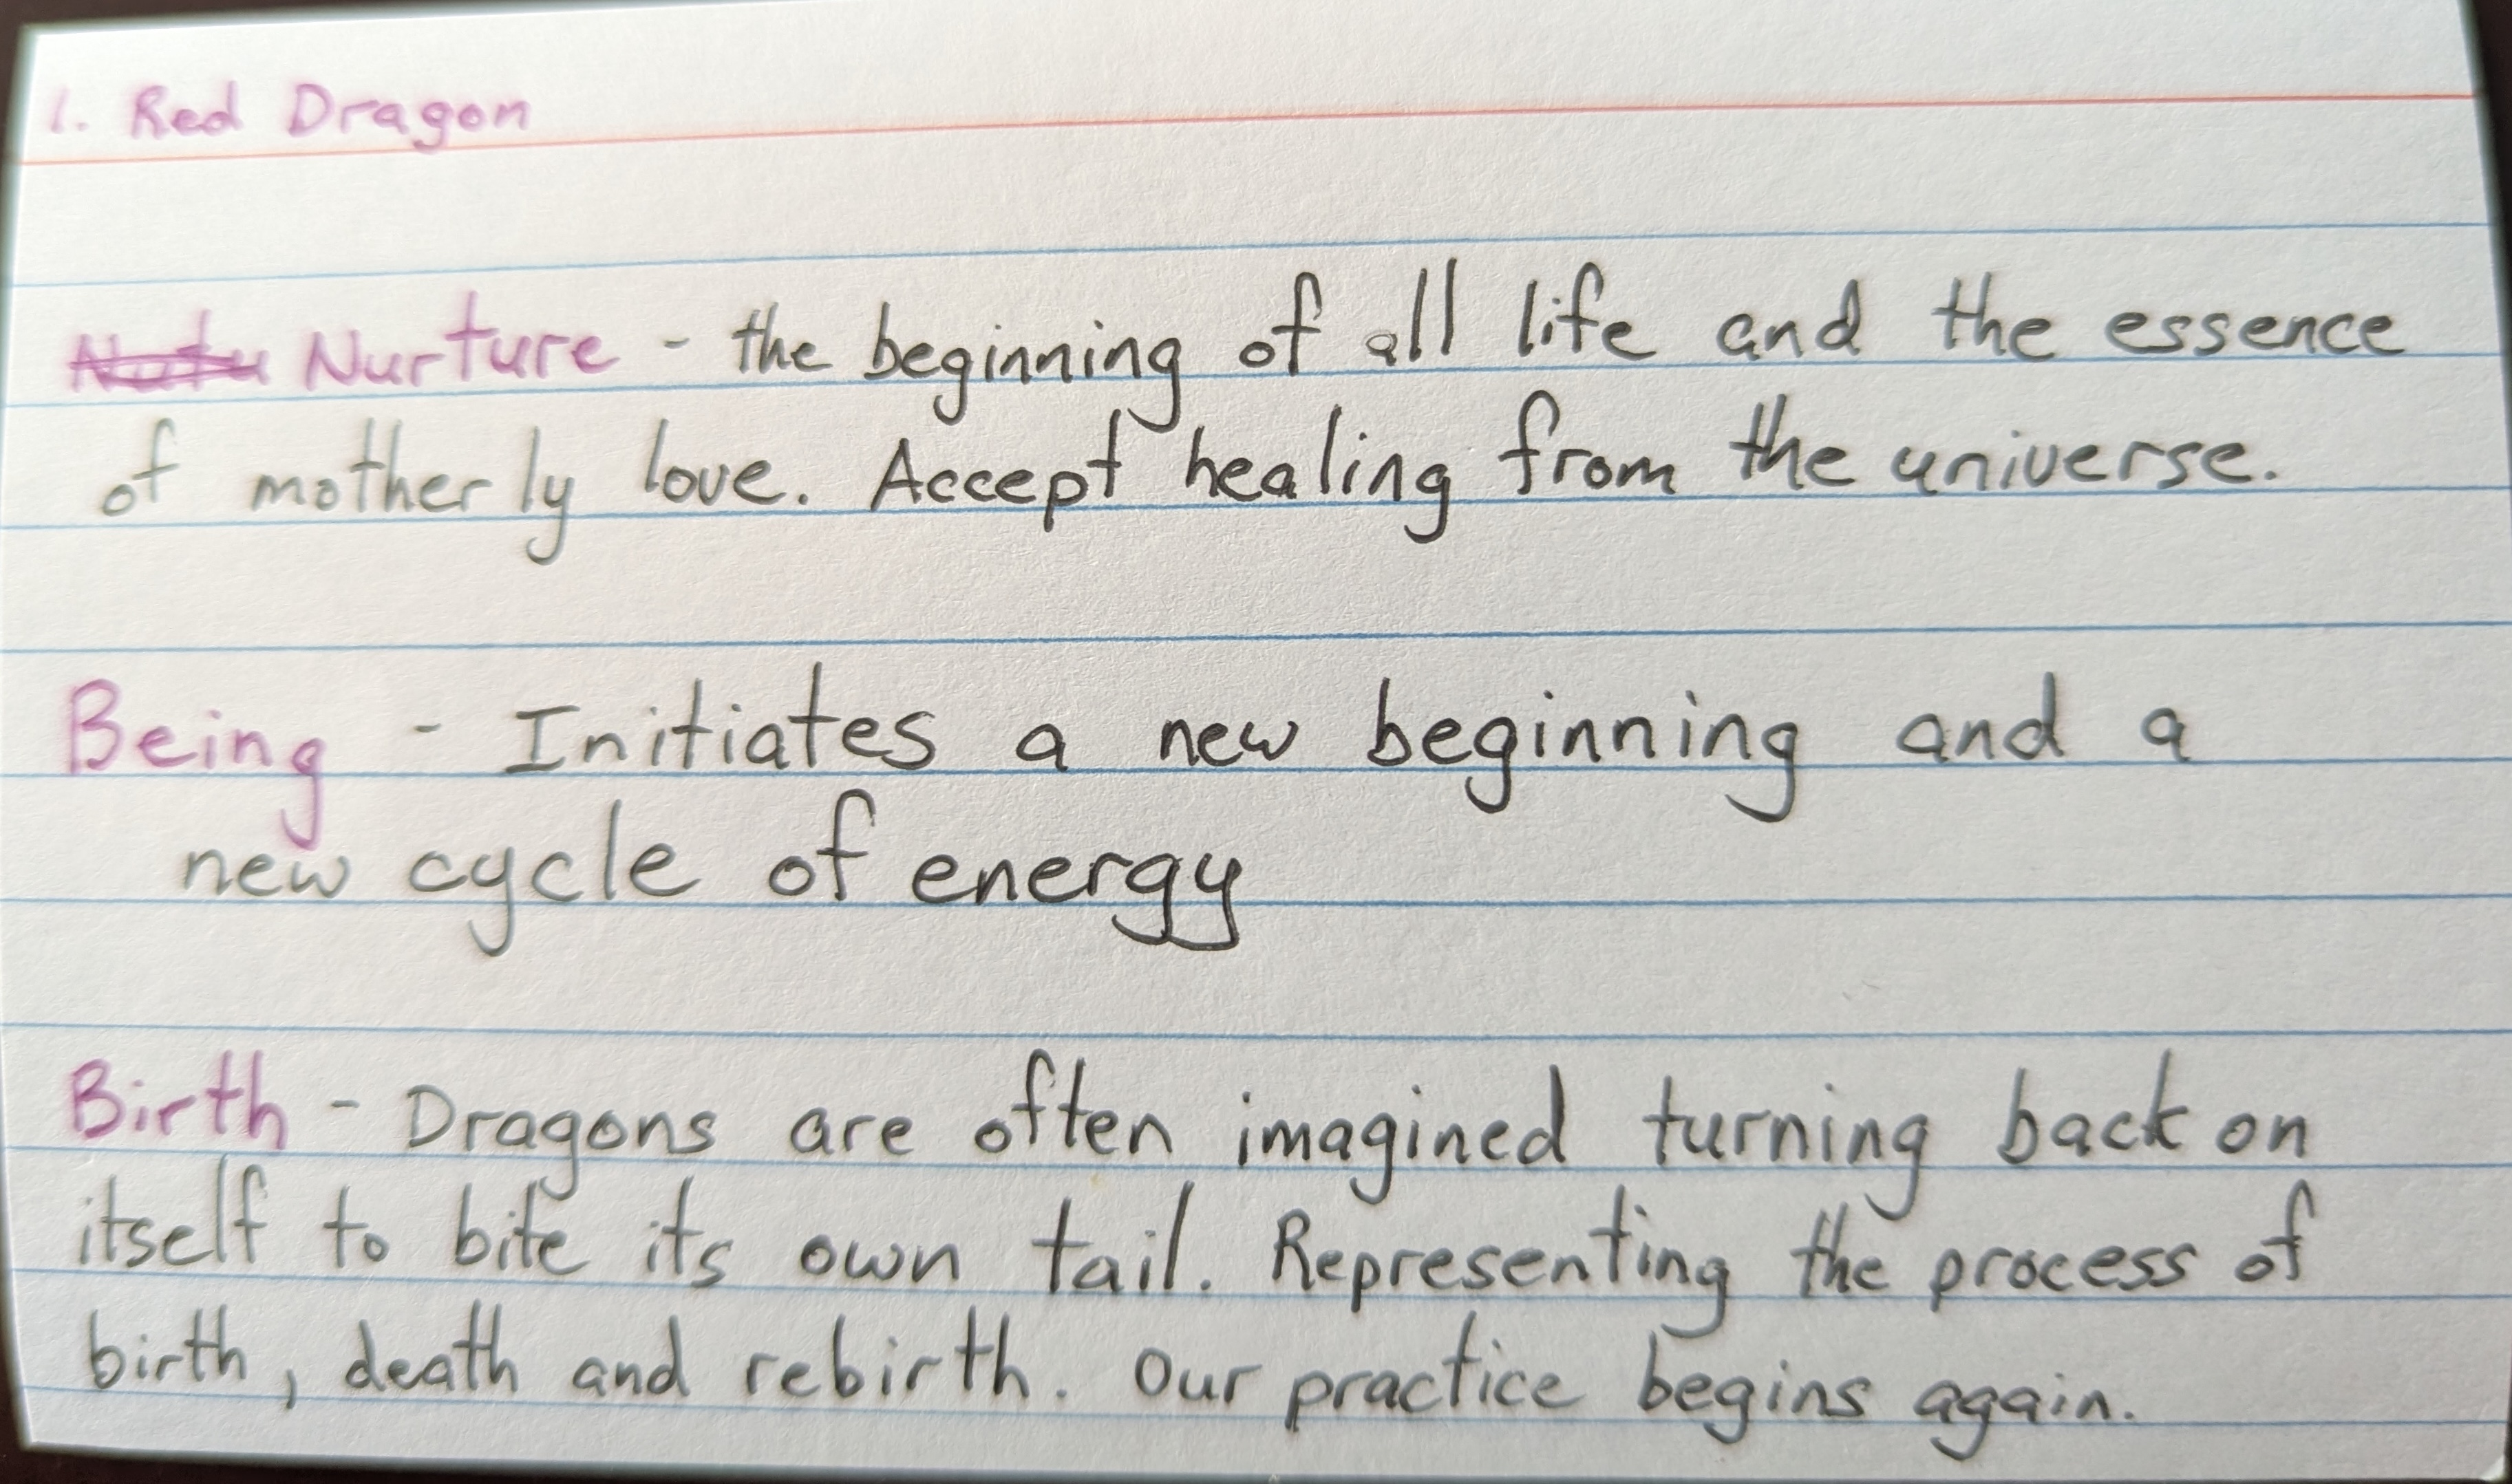 1. Red Dragon
Nurture - the beginning of all life and the essence
of motherly love. Accept healing from the universe.
Being - Initiates a new beginning and a
new cycle of energy
Birth - Dragons are often imagined turning back on
itself to bite its own tail. Representing the process of
birth, death and rebirth. Our practice begins again.